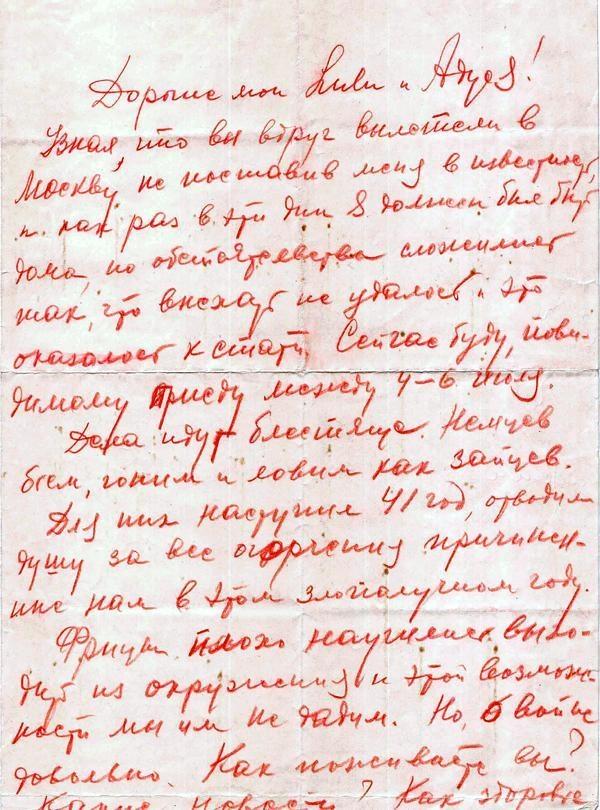 Дорогие мои Лили и Адуся!
Узнал, что вы вдруг вылетели в
Москву, не поставив меня в известность,
и как раз в эти дни я должен был быть
дома, но обстоятельства сложились
так, что выехать не удалось и это
оказалось кстати. Сейчас буду, пови-
димому приеду между 4–6 июля.
Дела идут блестяще. Немцев
бьем, гоним и ловим как зайцев.
Для них наступил 41 год, отводим
душу за все огорчения причинен-
ные нам в этом злополучном году.
Фрицы плохо научились выхо-
дить из окружения и этой возмож-
ности мы им не дадим. Но, о войне
довольно. Как поживаете вы?
Какие новости? Как здоровье